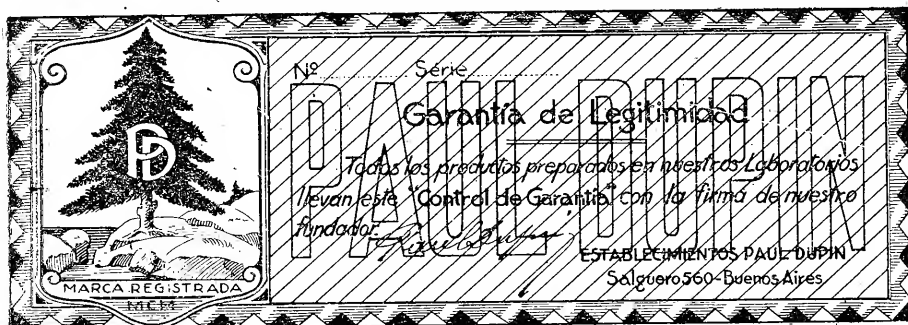 PD
MARCA REGISTRADA
MCM
PAUL DUPIN
Nº............ Série............
Garantía de Legitimidad
Todos los productos preparados en nuestros Laboratorios
llevan este "Control de Garantía" con la firma de nuestro
fundador. Paul Dupin
ESTABLECIMIENTOS PAUL DUPIN
Salguero 560-Buenos Aires